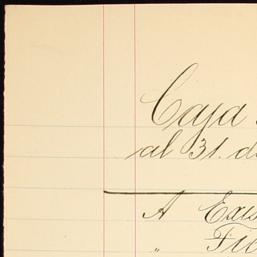 Caja
al 31. de
A Exis
" Fu